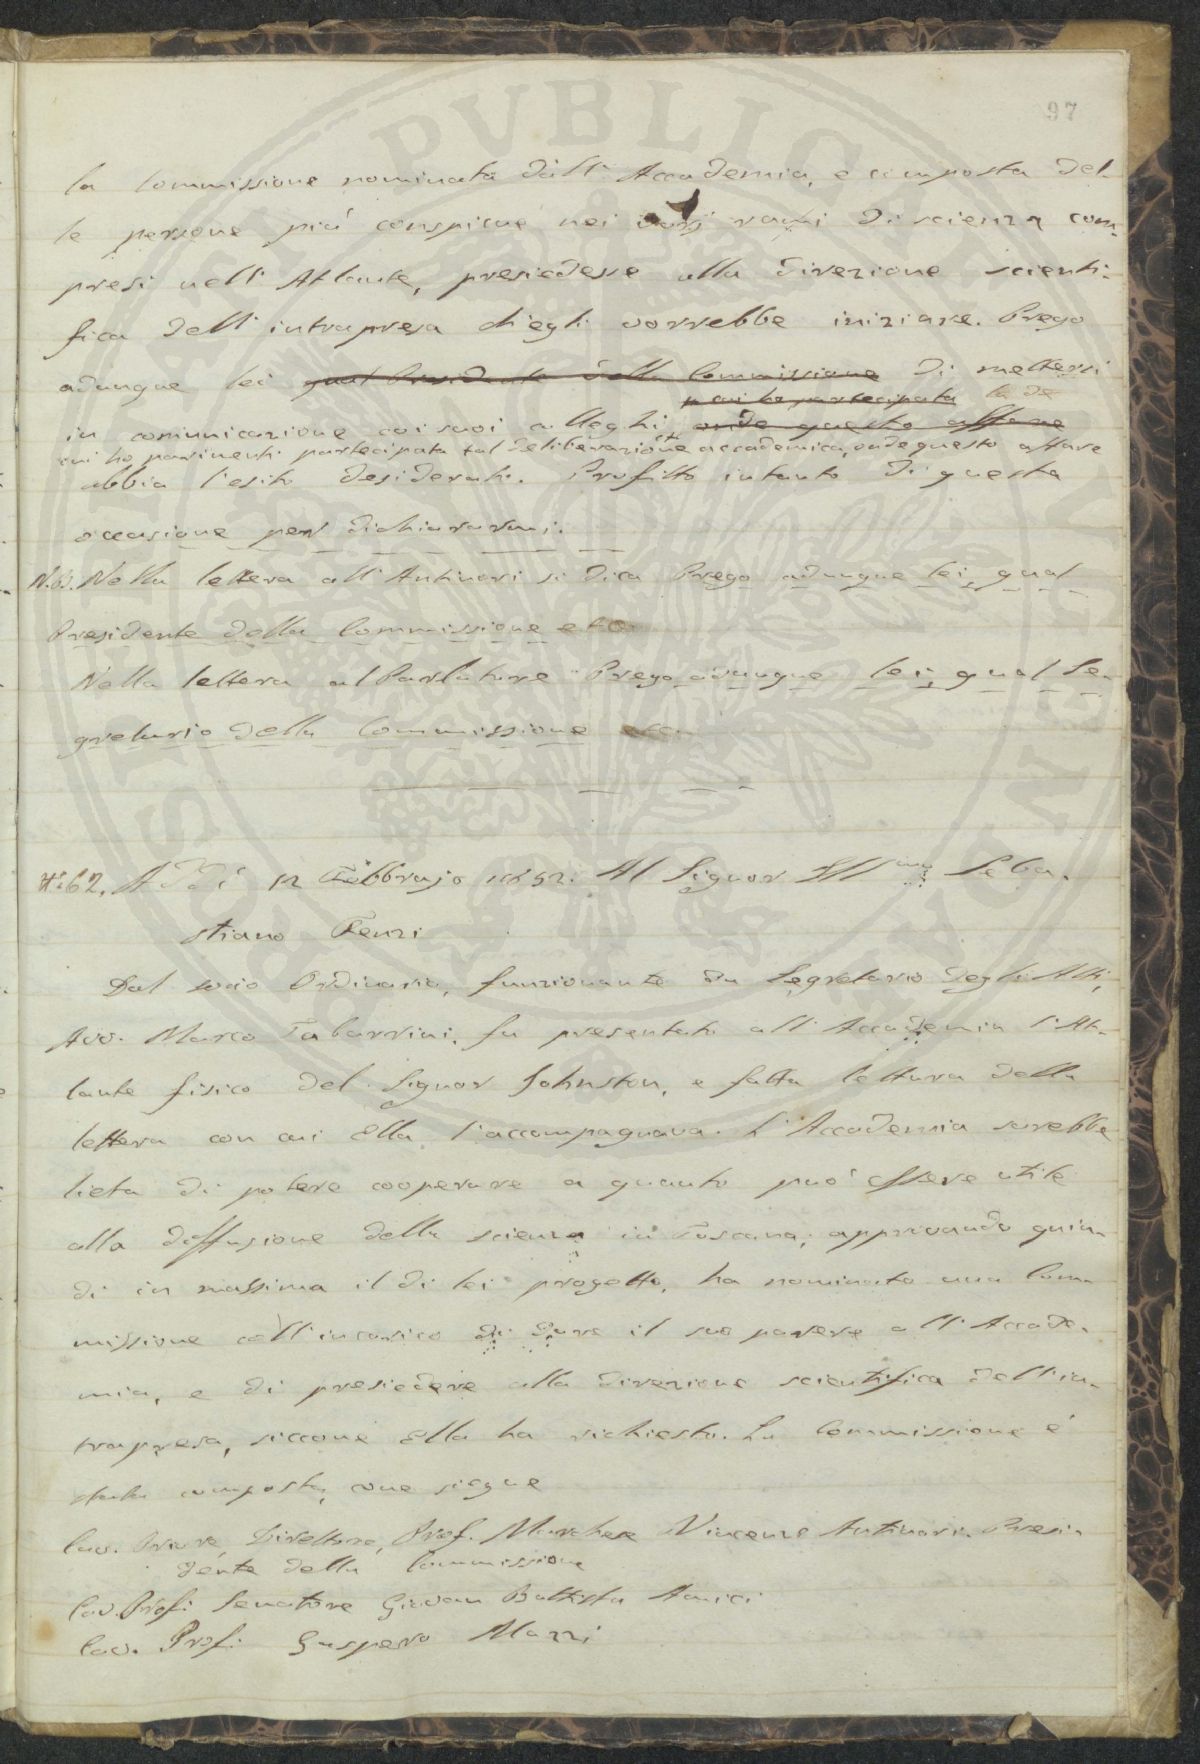 97
la Commissione nominata dall'Accademia, e composta del-
le persone più conspicue nei varj rami di scienza com-
presi nell'Atlante, presiedesse alla direzione scienti-
fica dell'intrapresa ch'egli vorrebbe iniziare. Prego
adunque lei qual Presidente della Commissione di mettersi
a cui ho partecipata la de
in comunicazione coi suoi colleghi, onde questo affare
cui ho parimenti partecipata tal deliberazione accademica, onde questo affare
abbia l'esito desiderato. Profitto intanto di questa
occasione per dichiararmi.
N.B. Nella lettera all'Antinori si dica Prego adunque lei, qual
Presidente della Commissione etc
Nella lettera al Parlatore "Prego adunque lei, qual Se-
gretario della Commissione etc.
N:62. A Dì 12 Febbrajo 1852. Al Signor Ill.mo Seba-
stiano Fenzi
Dal socio Ordinario, funzionante da Segretario degli Atti,
Avv. Marco Tabarrini, fu presentato all'Accademia l'At-
lante fisico del Signor Johnston, e fatta lettura della
lettera con cui Ella l'accompagnava. L'Accademia sarebbe
lieta di potere cooperare a quanto può essere utile
alla diffusione della scienza in Toscana; approvando quin-
di in massima il di lei progetto, ha nominato una Com-
missione coll'incarico di dare il suo parere all'Accade-
mia, e di presiedere alla direzione scientifica dell'in-
trapresa, siccome Ella ha richiesto. La Commissione è
stata composta, come siegue
Cav. Priore, Direttore, Prof. Marchese Vincenzo Antinori. Presi-
dente della Commissione
Cav. Prof. Senatore Giovan Battista Amici
Cav. Prof. Gaspero Mazzi